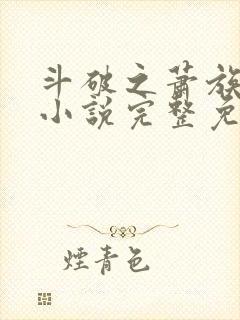 斗破之蕭族
小說完整免
煙青色